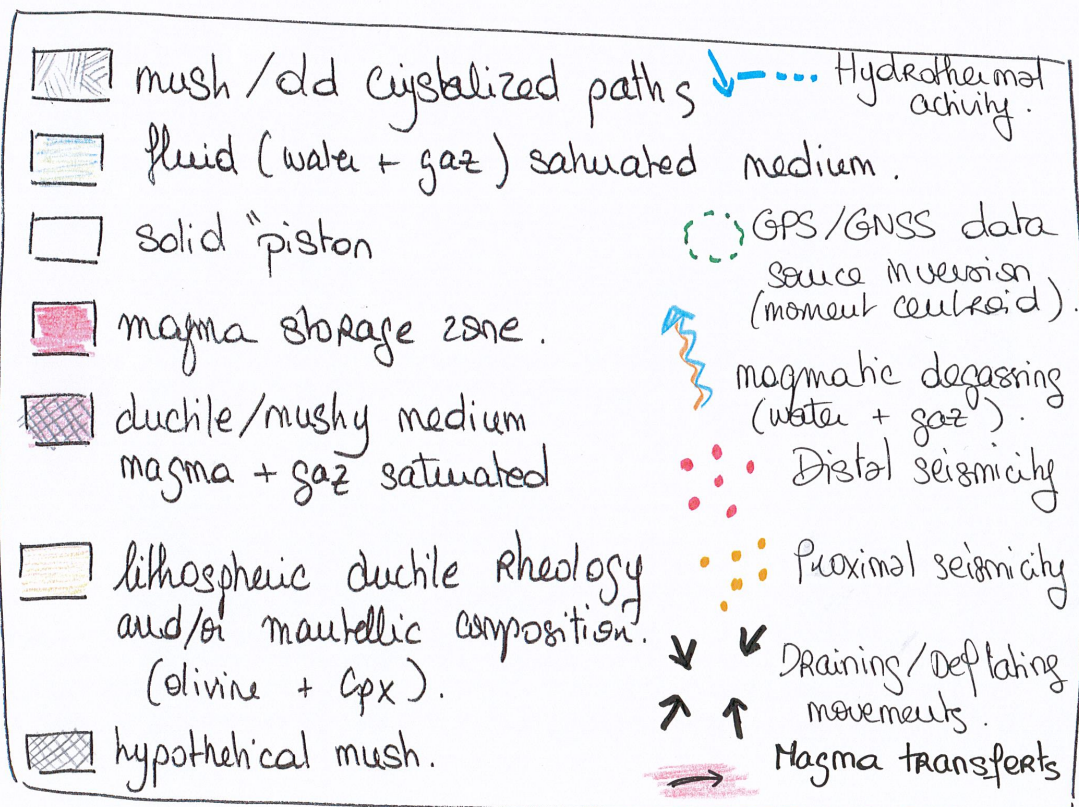 mush/old crystalized paths
fluid (water + gaz) saturated medium.
solid "piston
magma storage zone.
ductile/mushy medium
magma + gaz saturated
lithospheric ductile Rheology
and/or mantellic composition.
(olivine + Cpx).
hypothetical mush.
Hydrothermal
activity.
GPS/GNSS data
source inversion
(moment centroid).
magmatic degassing
(water + gaz).
Distal seismicity
Proximal seismicity
Draining/Deflating
movements.
Magma transferts